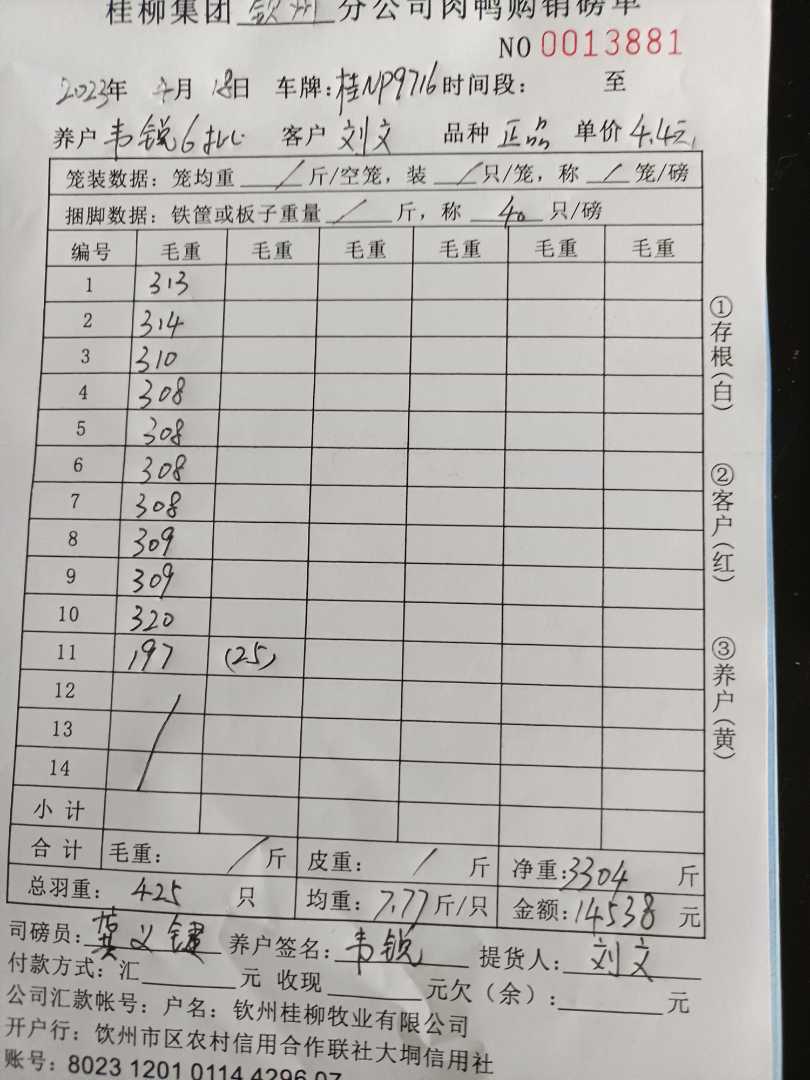 桂柳集团 钦州 分公司肉鸭购销磅单
NO 0013881
2023年 月 18日 车牌:桂NP9716 时间段: 至
养户 韦锐6批 客户 刘文 品种 正品 单价 4.4元
笼装数据: 笼均重 / 斤/空笼, 装 / 只/笼, 称 / 笼/磅
捆脚数据: 铁筐或板子重量 / 斤, 称 40 只/磅
编号 毛重 毛重 毛重 毛重 毛重 毛重
1 313
2 314
3 310
4 308
5 308
6 308
7 308
8 309
9 309
10 320
11 197 (25)
12
13
14
小计
合计 毛重: / 斤 皮重: / 斤 净重:3304 斤
总羽重: 425 只 均重: 7.77 斤/只 金额:14538 元
司磅员: 义键 养户签名: 韦锐 提货人: 刘文
付款方式: 汇 元 收现 元欠(余): 元
公司汇款帐号: 户名: 钦州桂柳牧业有限公司
开户行: 钦州市区农村信用合作联社大垌信用社
账号: 8023 1201 0114 4296 07
①存根(白)
②客户(红)
③养户(黄)